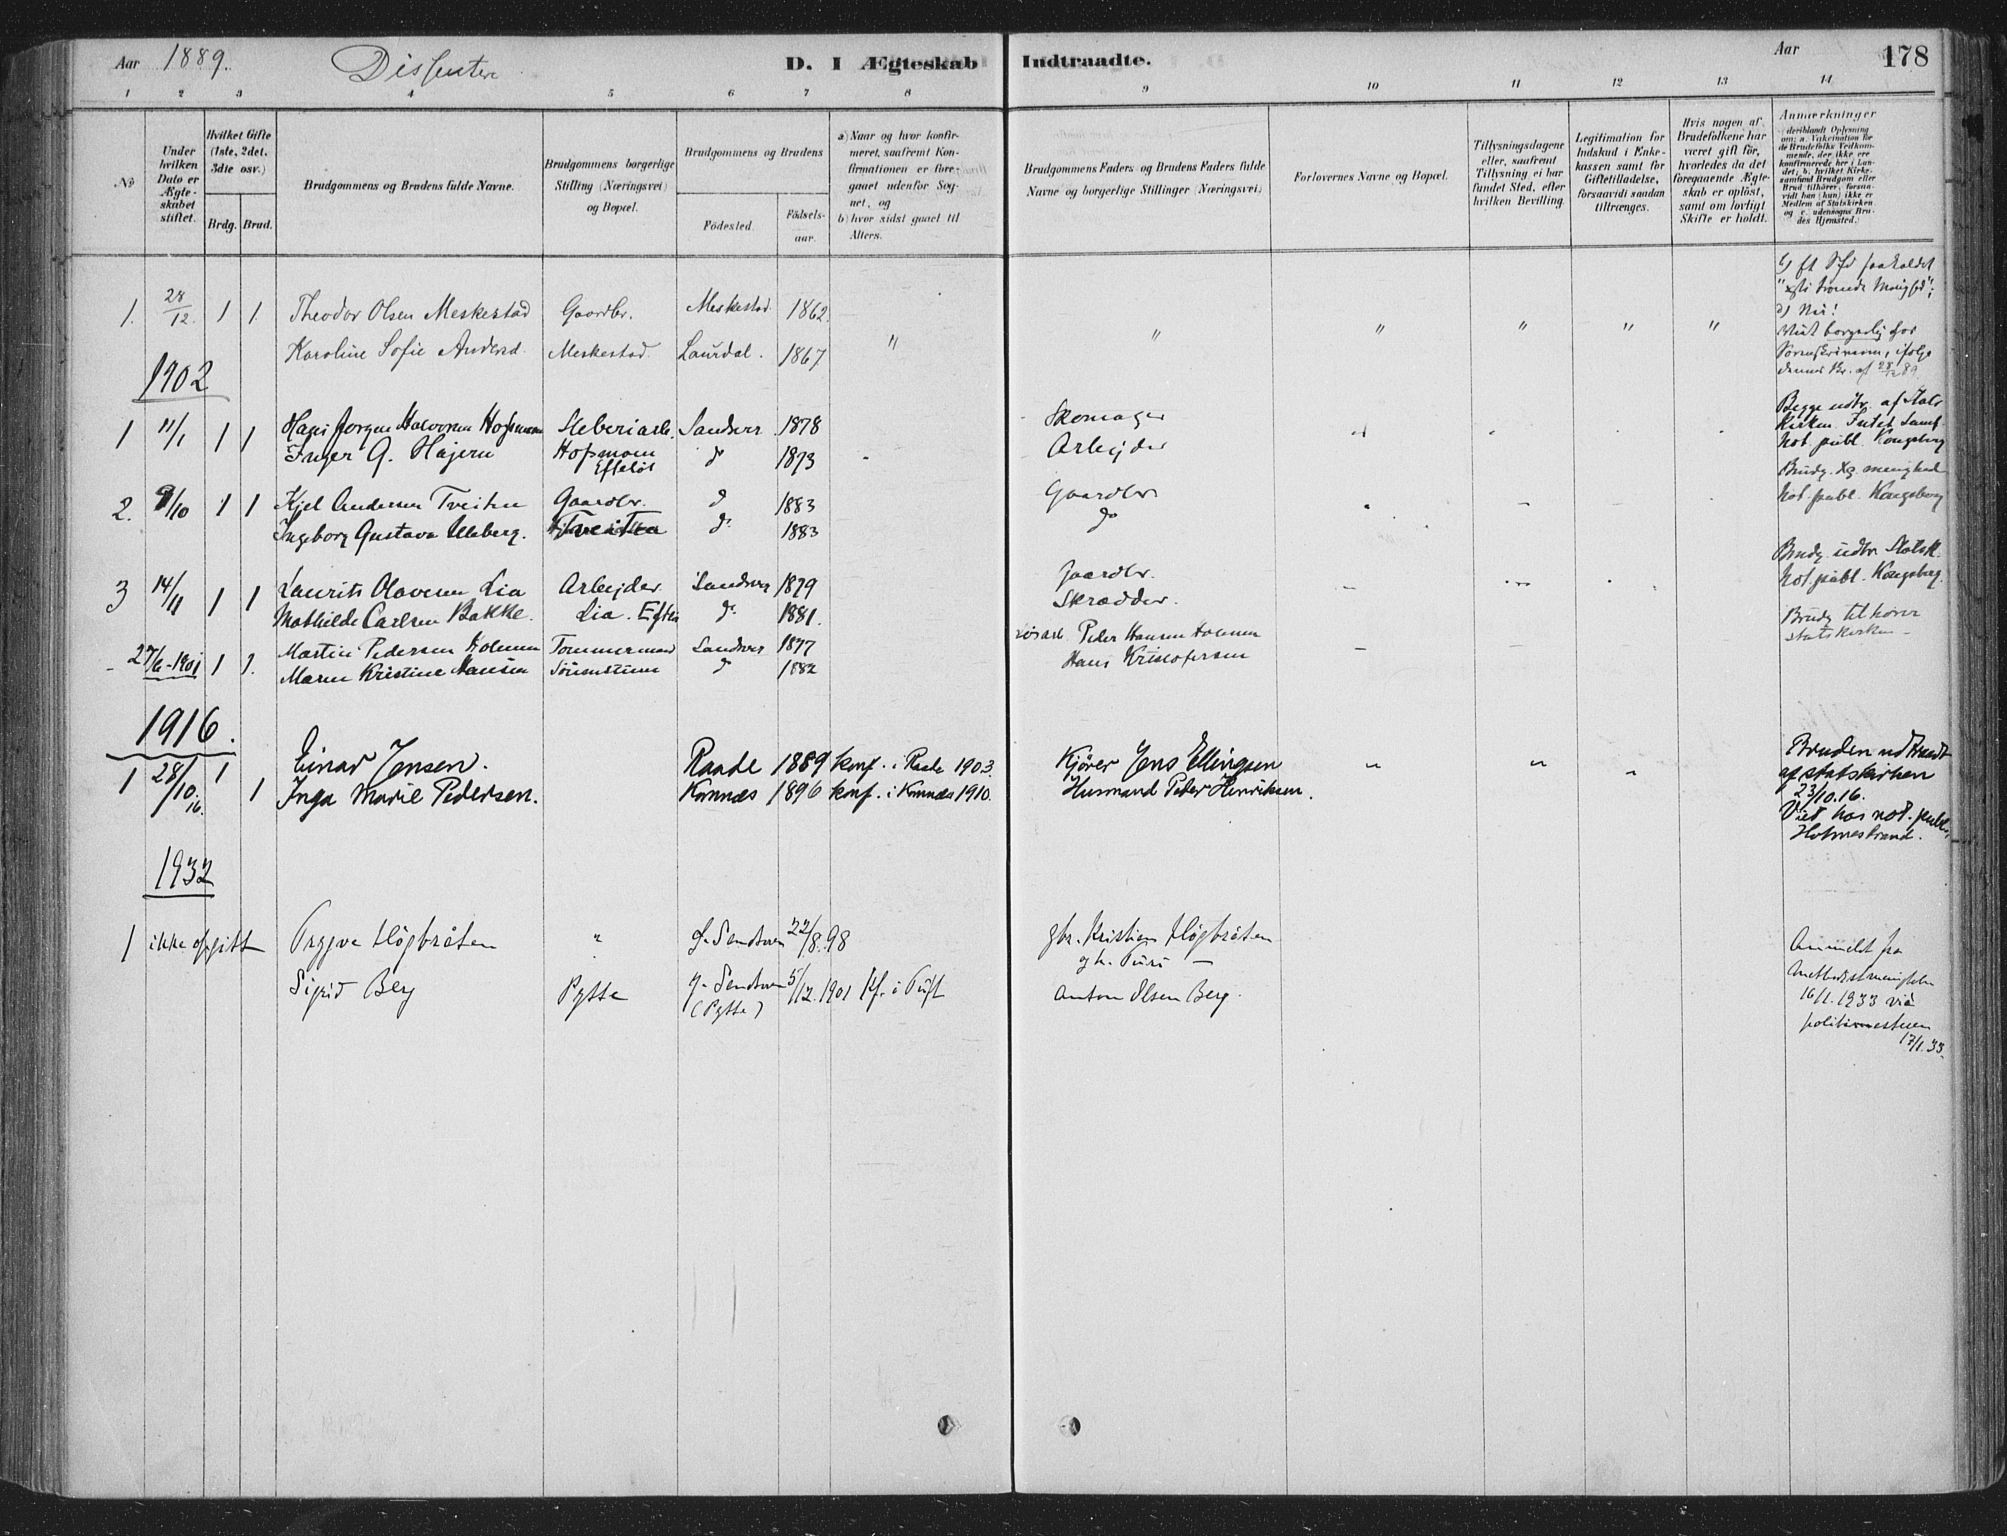 Aar 1889. Dissentere D. I Ægteskab Indtraadte. Aar 178
1 2 3 4 5 6 7 8 9 10 11 12 13 14
No
Under hvilken Dato er Ægteskabet stiftet.
Hvilket Gifte (1ste, 2det, 3die osv.)
Brdg. Brud.
Brudgommens og Brudens fulde Navne.
Brudgommens borgerlige Stilling (Næringsvei) og Bopæl.
Brudgommens og Brudens
Födested.
Födselsaar.
a) Naar og hvor konfirmeret, saafremt Konfirmationen er foregaaet udenfor Sognet, og
b) hvor sidst gaaet til Alters.
Brudgommens Faders og Brudens Faders fulde Navne og borgerlige Stillinger (Næringsvei)
Forlovernes Navne og Bopæl.
Tillysningsdagene eller, saafremt Tillysning ei har fundet Sted, efter hvilken Bevilling.
Legitimation for Indskud i Enkekassen samt for Giftetilladelse, forsaavidt saadan tiltrænges.
Hvis nogen af Brudefolkene har været gift för, hvorledes da det foregaaende Ægteskab er oplöst, samt om lovligt Skifte er holdt.
Anmærkninger
(deriblandt Oplysning om: a. Vakcination for de Brudefolks Vedkommende, der ikke ere konfirmerede her i Landet; b. hvilket Kirkesamfund Brudgom eller Brud tilhörer, forsaavidt han (hun) ikke er Medlem af Statskirken og c. udensogns Brudes Hjemsted.)
1. 28/12. 1 1 Theodor Olsen Meskestad Gaardbr. Meskestad 1862. " " " " " "
Karoline Sofie Andersd. Meskestad. Laurdal. 1867
Viet borgerlig for
Sorenskriveren, ifølge
dennes Br. af 28/12 89
1902
1 11/1 1 1 Hans Jørgen Halvorsen Hofsmoen Sandsvær 1878 Skomager
Inger G. Hajem Hofsmoen Efteløt do 1873 Arbejder
Begge udtr. af Stats
Kirken. Intet Samf.
Not. publ. Kongsberg
2. 9/10 1 1 Kjel Andersen Tveiten Gaardbr. do 1883 Gaardbr.
Ingeborg Gustava Ulleberg. Tveiten do 1883 do
Brudg. menighed
Not. publ. Kongsberg
3 14/11 1 1 Laurits Olavesen Lia Arbejder Sandsvær 1879 Gaardbr.
Mathilde Carlsen Bakke. Lia. Efteløt do 1881. Skrædder.
Brudg. udtr. Statsk.
Not. publ. Kongsberg.
- 27/6-1901 1 1. Martin Pedersen Holmen Tømmermand Sandsvær 1877 Peder Hansen Holmen
Maren Kristine Hansen do 1882 Hans Kristofersen
Brudg tilhører
statskirken
1916.
1 28/10.16. 1 Einar Jensen. Raade 1889 konf. i Raade 1903. Kjører Jens Ellingsen
1 Inga Marie Pedersen. Komnæs 1896 konf. i Komnæs 1910. Husmand Peder Henriksen.
Bruden udtraadt
af statskirken
23/10.16.
Viet hos not. publ.
Holmestrand.
1932
1 ikke opgitt Trygve Høgbråten " Ø. Sandsvær 22/8.98 gbr. Kristian Høgbråten
Sigrid Berg Pytte Ø. Sandsvær (Pytte) 5/12.1901 kf. i Tuft Anton Olsen Berg.
Anmeldt fra
Metodistmenigheden
16/1.1933 via
politimesteren
17/1.33.